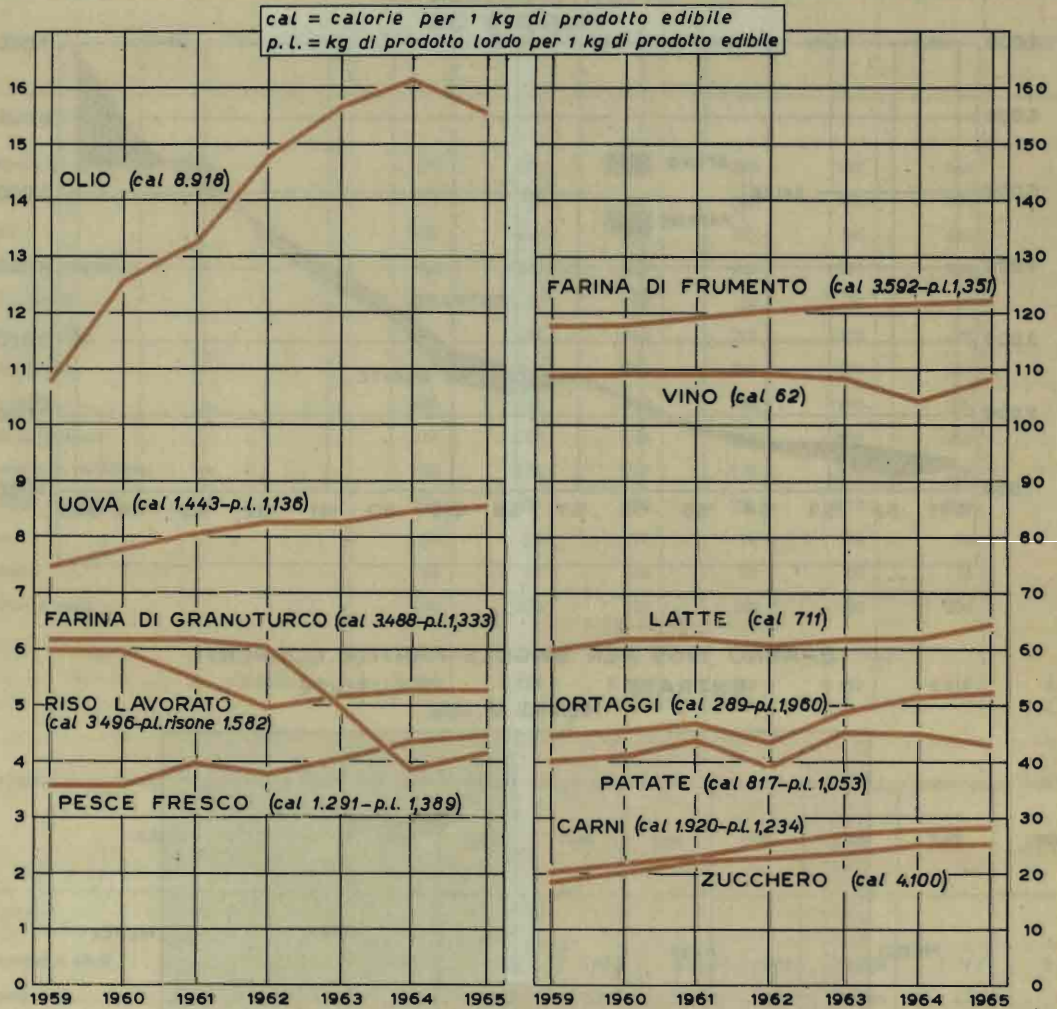 cal = calorie per 1 kg di prodotto edibile
p. l. = kg di prodotto lordo per 1 kg di prodotto edibile
16
15
14
13
12
11
10
9
8
7
6
5
4
3
2
1
0
OLIO (cal 8.918)
UOVA (cal 1.443-p.l. 1,136)
FARINA DI GRANOTURCO (cal 3.488-p.l.1,333)
RISO LAVORATO
(cal 3 496-pl.risone 1.582)
PESCE FRESCO (cal 1.291-p.l. 1,389)
1959 1960 1961 1962 1963 1964 1965
160
150
140
130
120
110
100
90
80
70
60
50
40
30
20
10
0
FARINA DI FRUMENTO (cal 3.592-p.l.1,351)
VINO (cal 62)
LATTE (cal 711)
ORTAGGI (cal 289-p.l.1,960)
PATATE (cal 817-p.l. 1,053)
CARNI (cal 1.920-p.l. 1,234)
ZUCCHERO (cal 4.100)
1959 1960 1961 1962 1963 1964 1965